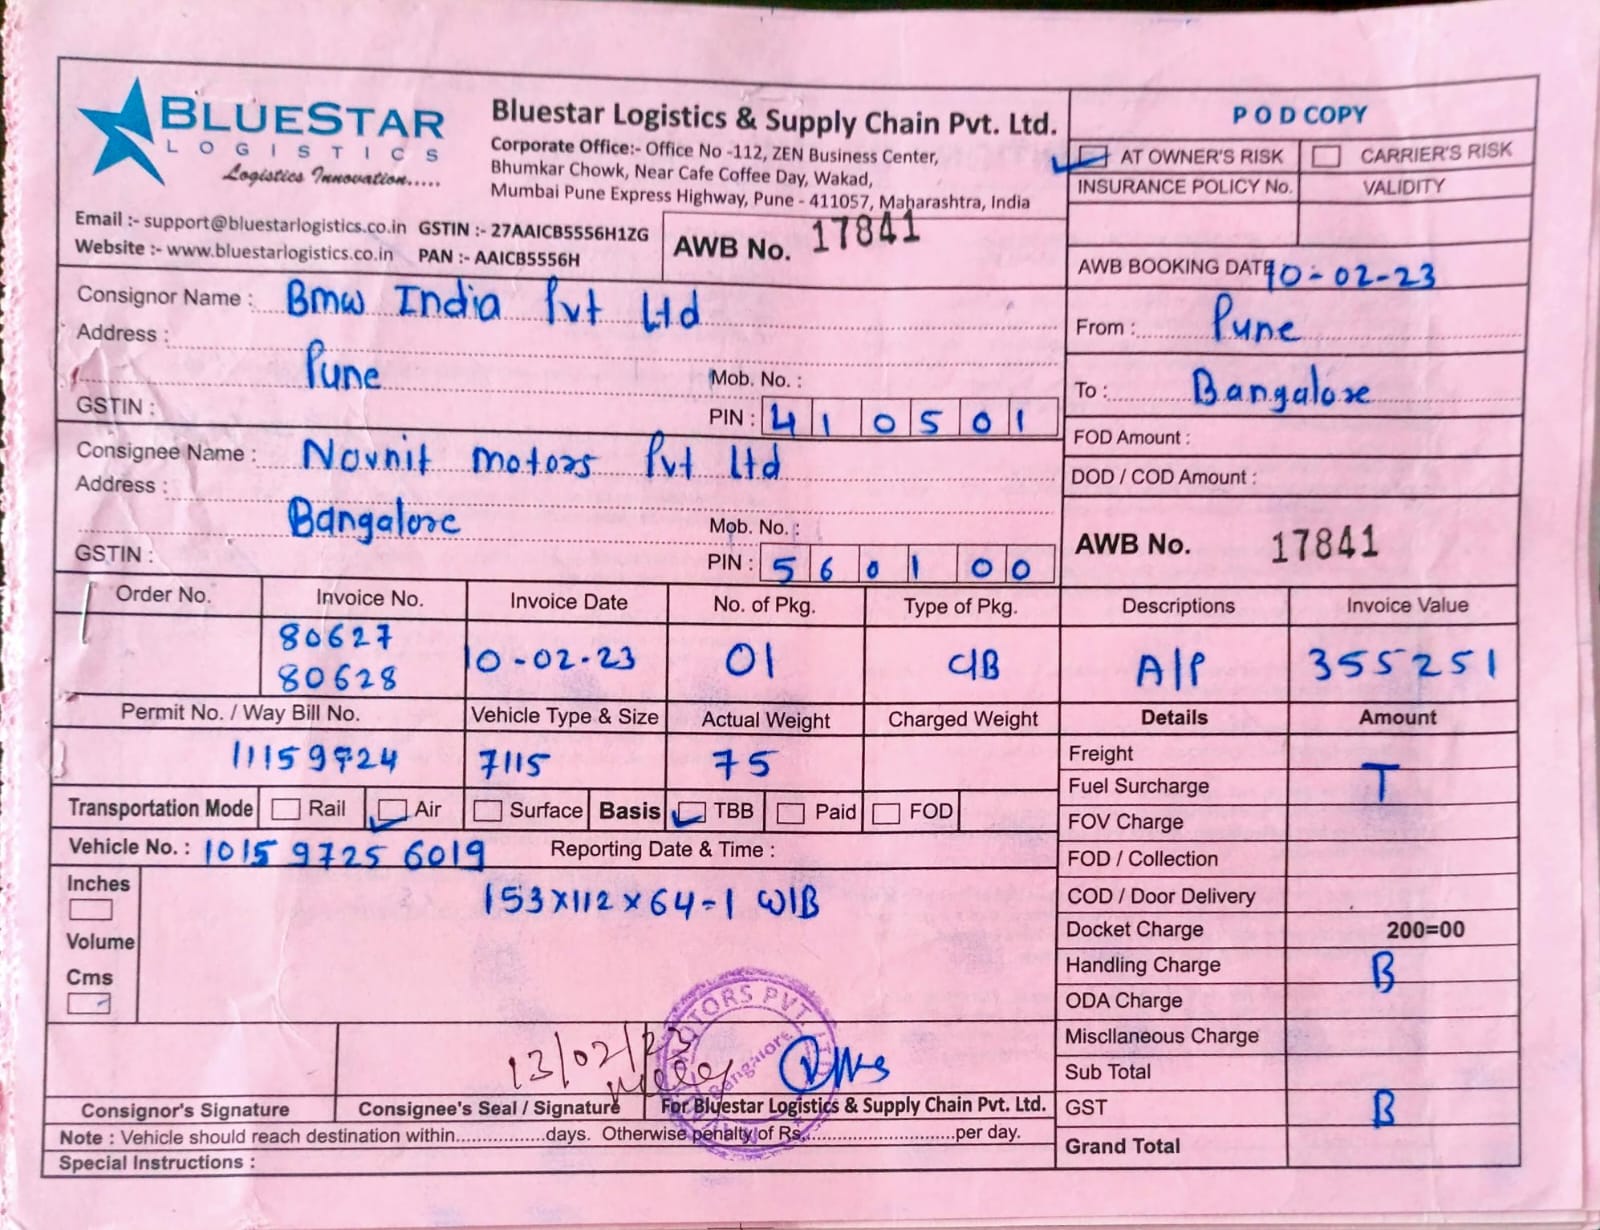 BLUESTAR
LOGISTICS
Logistics Innovation.....
Bluestar Logistics & Supply Chain Pvt. Ltd.
Corporate Office:- Office No -112, ZEN Business Center,
Bhumkar Chowk, Near Cafe Coffee Day, Wakad,
Mumbai Pune Express Highway, Pune - 411057, Maharashtra, India
Email :- support@bluestarlogistics.co.in GSTIN :- 27AAICB5556H1ZG
Website :- www.bluestarlogistics.co.in PAN :- AAICB5556H
AWB No. 17841
P O D COPY
AT OWNER'S RISK CARRIER'S RISK
INSURANCE POLICY No. VALIDITY
AWB BOOKING DATE 10-02-23
From : Pune
To : Bangalore
FOD Amount :
DOD / COD Amount :
AWB No. 17841
Consignor Name : Bmw India Pvt Ltd
Address :
Pune Mob. No. :
GSTIN : PIN : 410501
Consignee Name : Novnit motors Pvt ltd
Address :
Bangalore Mob. No. :
GSTIN : PIN : 560100
Order No. Invoice No. Invoice Date No. of Pkg. Type of Pkg. Descriptions Invoice Value
80627
80628 10-02-23 01 C/B A/P 355251
Permit No. / Way Bill No. Vehicle Type & Size Actual Weight Charged Weight Details Amount
11159724 7115 75
Freight
Fuel Surcharge T
FOV Charge
FOD / Collection
COD / Door Delivery
Docket Charge 200=00
Handling Charge B
ODA Charge
Miscllaneous Charge
Sub Total
GST B
Grand Total
Transportation Mode Rail Air Surface Basis TBB Paid FOD
Vehicle No. : 1015 9725 6019 Reporting Date & Time :
Inches
Volume
Cms
153x112x64-1 W/B
13/02/23
TORS PVT. LTD
Bangalore
Consignor's Signature Consignee's Seal / Signature For Bluestar Logistics & Supply Chain Pvt. Ltd.
Note : Vehicle should reach destination within.................days. Otherwise penalty of Rs............................per day.
Special Instructions :